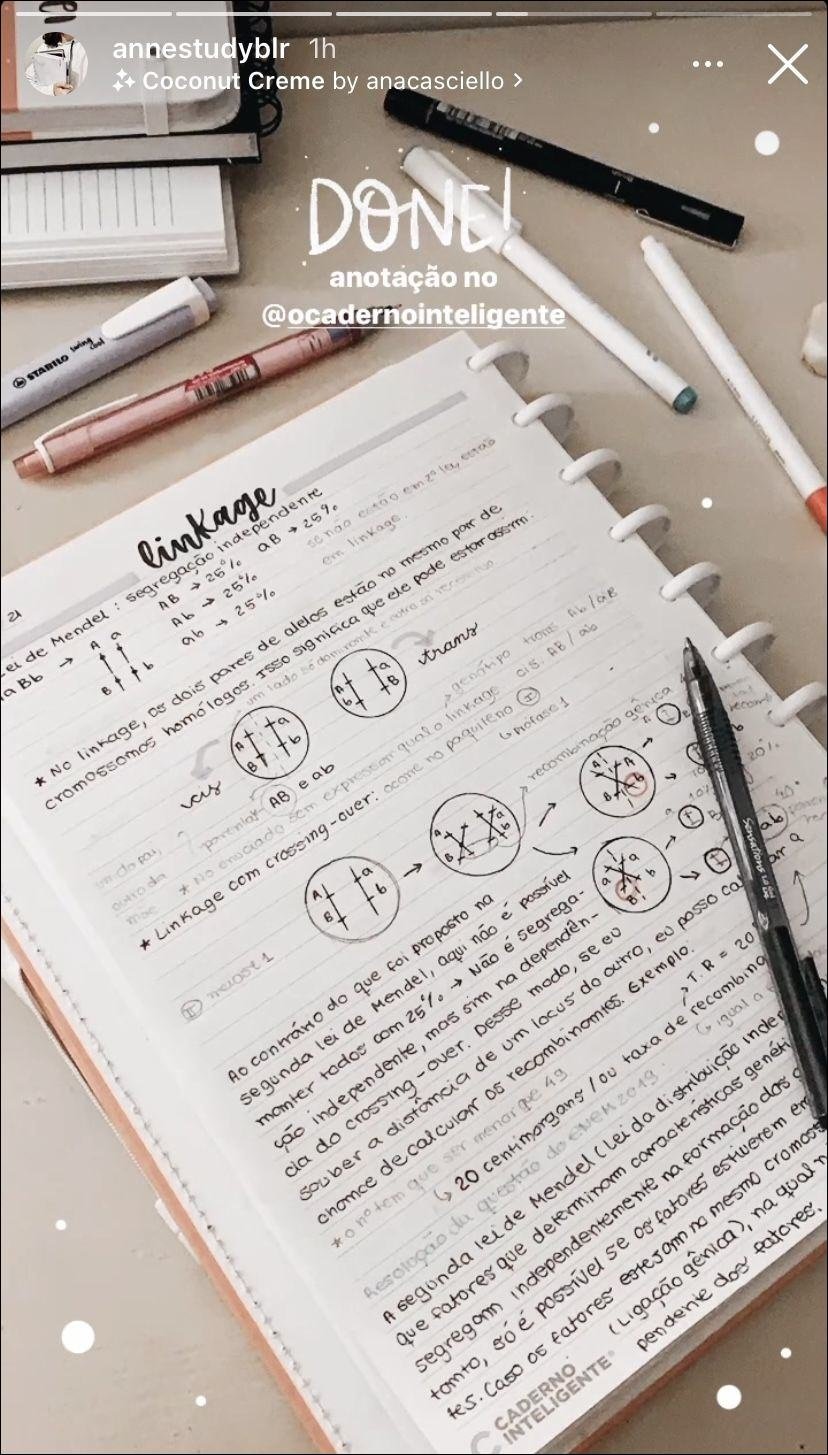 annestudyblr 1h
Coconut Creme by anacasciello >
DONE!
anotação no
@ocadernointeligente
STABILO swing cool
linkage
21
Lei de Mendel: segregação independente
AB → 25% aB → 25%
Ab → 25%
ab → 25%
se não estão em 2ª lei, estão
em linkage.
aBb →
A a
B b
* No linkage, os dois pares de alelos estão no mesmo par de
cromossomos homólogos. Isso significa que ele pode estar assim:
um lado só dominante e outro só recessivo
A a
B b
A a
b B
trans
cis
genótipo trans Ab/aB
cis: AB/ab
parental AB e ab
* No enunciado sem expressar qual o linkage
* Linkage com crossing-over: ocorre no paquíteno I
prófase 1
um do pai,
outro da
mãe
A a
B b
recombinação gênica
II meiose 1
Ao contrário do que foi proposto na
segunda lei de Mendel, aqui não é possível
manter todos com 25% → Não é segrega-
ção independente, mas sim na dependên-
cia do crossing-over. Desse modo, se eu
souber a distância de um locus do outro, eu posso
chance de calcular os recombinantes. Exemplo:
* o nº tem que ser menor que 49
20 centimorgans / ou taxa de recombin
T.R = 20
igual a
Resolução da questão do ENEM 2019.
A segunda lei de Mendel (Lei da distribuição inde
que fatores que determinam características genéti
segregam independentemente na formação dos
tanto, só é possível se os fatores estiverem em
tes. Caso os fatores estejam no mesmo cromoss
(Ligação gênica), na qual
pendente dos fatores.
CADERNO
INTELIGENTE
Sensations